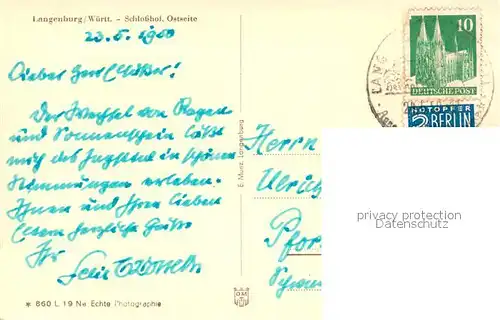 Langenburg/Württ. - Schloßhof, Ostseite
23.5.1950
Lieber Herr
Der Wechsel von Regen
und Sonnenschein läßt
mich das Jagsttal in schönen
Stimmungen erleben.
Ihnen und Ihren lieben
Eltern herzliche Grüße
Ihr
✳ 860 L 19 Ne Echte Photographie
E. Munz, Langenburg
Herrn
Ulrich
Pfor
10
DEUTSCHE POST
NOTOPFER
2 BERLIN
privacy protection
Datenschutz